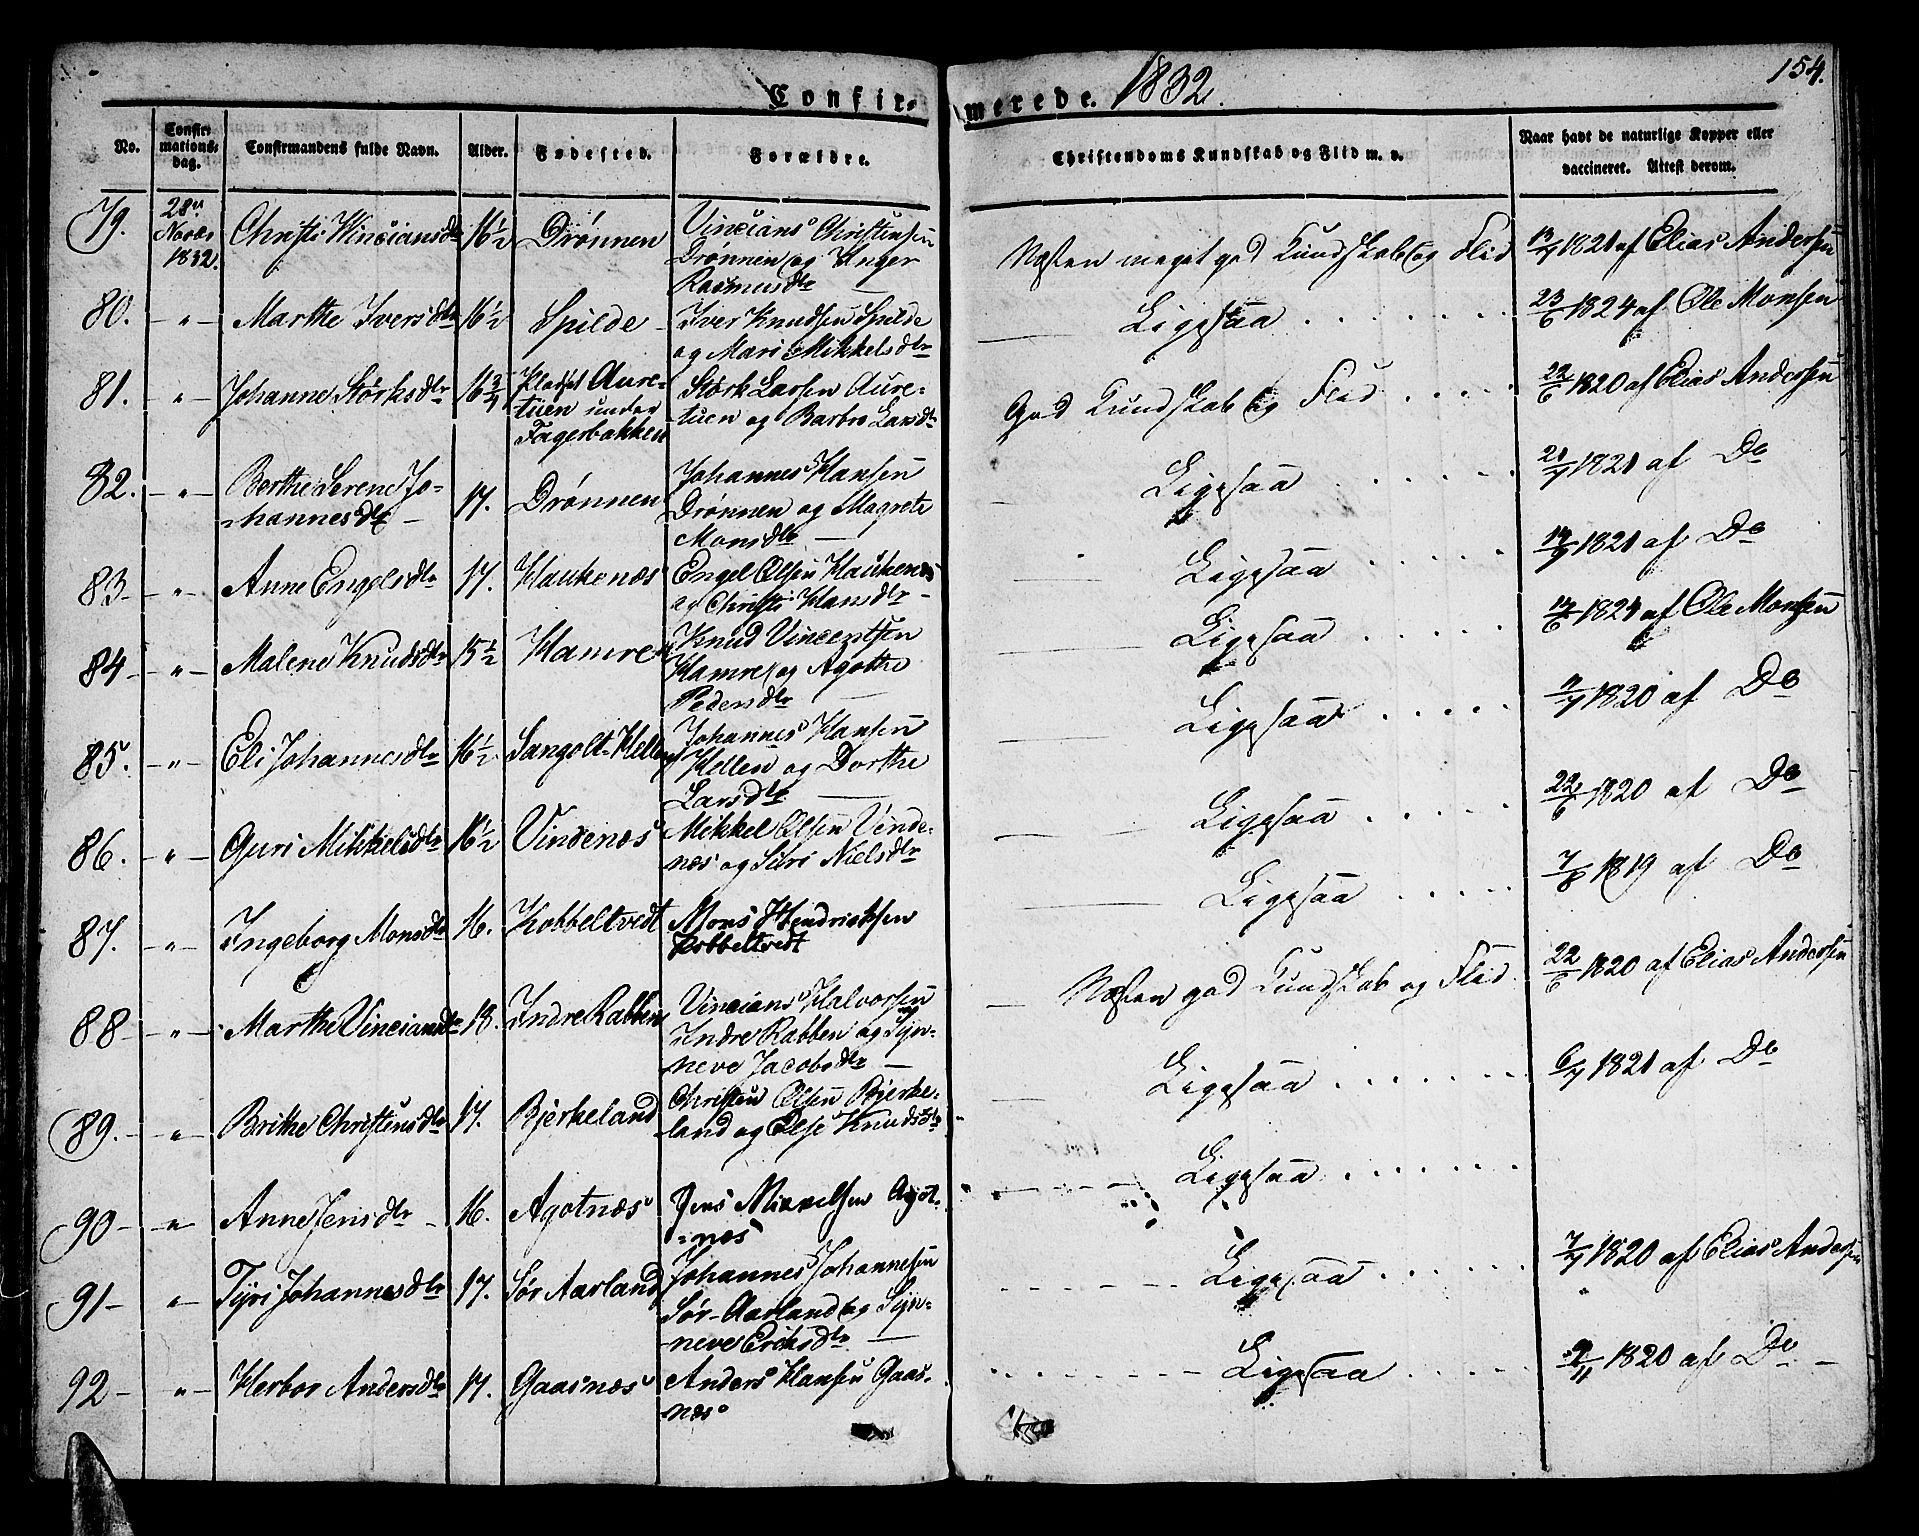 154.
Confirmerede. 1832.
No. Confirmationsdag. Confirmandens fulde Navn. Alder. Fødested. Forældre. Christendoms Kundskab og Flid m. v. Naar havt de naturlige Kopper eller vaccineret. Attest derom.
79. 28de Novbr 1832. Christi Vincians Dtr 16 1/2 Drønnen Vincians Christensen
Drønnen og Inger
Rasmusdtr Næsten meget god Kundskab og Flid 13/7 1821 af Elias Andersen
80. — " — Marthe Iversdtr 16 1/2 Spilde Iver Knudsen Spilde
og Mari Mikkelsdtr Ligesaa 23/6 1824 af Ole Monsen
81. — " — Johanne Størksdtr 16 3/4 Pladset Aure-
tuen under
Fagerbakken Størk Larsen Aure-
tuen og Barbro Larsdtr God Kundskab og Flid 22/6 1820 af Elias Andersen
82. — " — Berthe Serene Jo-
hannesdtr 17. Drønnen Johannes Hansen
Drønnen og Magrete
Monsdtr Ligesaa 21/7 1821 af Do
83 — " — Anne Engelsdtr 17. Haukenæs Engel Olsen Haukenæs
og Christi Hansdtr Ligesaa 1821 af Do
84 — " — Malene Knudsdtr 15 1/2 Hamre Knud Vincentsen
Hamre og Agothe
Pedersdtr Ligesaa 1821 af Ole Monsen
85. — " — Eli Johannesdtr 16 1/2 Sangolt-Hellen Johannes Hansen
Hellen og Dorthe
Larsdtr Ligesaa 1820 af Do
86. — " — Guri Mikkelsdtr 16 1/2 Vindenæs Mikkel Olsen Vinde-
næs og Siri Nielsdtr Ligesaa 22/6 1820 af Do
87. — " — Ingeborg Monsdtr 16. Kobbeltvedt Mons Hendricksen
Kobbeltvedt Ligesaa 7/8 1819 af Do
88 — " — Marthe Vinciansdtr 18. Indre Rabben Vincians Halvorsen
Indre Rabben og Syn-
neve Jacobsdtr Næsten god Kundskab og Flid 22/6 1820 af Elias Andersen
89. — " — Brithe Christensdtr 17. Bjerkeland Christen Olsen Bjerke-
land og Else Knudsdtr Ligesaa 6/7 1821 af Do
90 — " — Anne Jensdtr 16. Agotnæs Jens Mikkelsen Agot-
næs Ligesaa
91 — " — Tyri Johannesdtr 17. Sør Aarland Johannes Johannesen
Sør-Aarland og Syn-
neve Eriksdtr Ligesaa 7/7 1820 af Elias Andersen
92 — " — Herbor Andersdtr 17. Gaasnæs Anders Hansen Gaas-
næs Ligesaa 9/11 1820 af Do